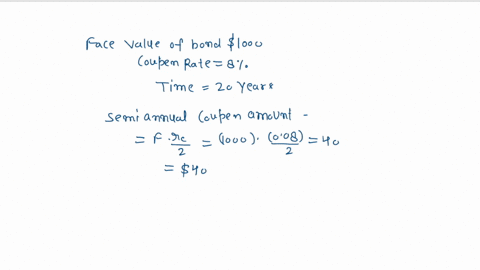 Face Value of bond $1000
Coupen Rate = 8%.
Time = 20 Years
Semi annual Coupen amount -
= F · rc/2 = (1000) · (0.08)/2 = 40
= $40